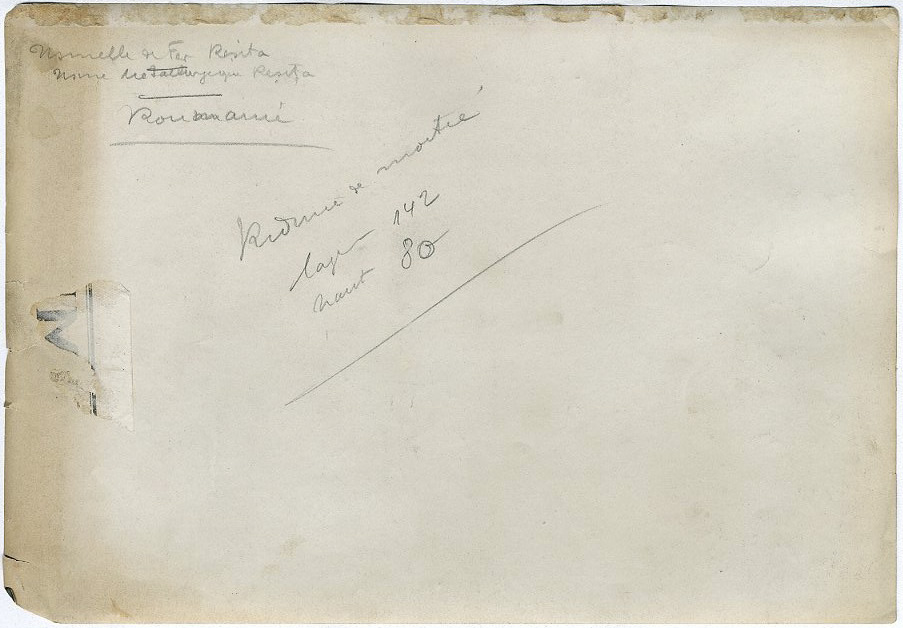 de Fer Resita
Usine Metallurgique Resița
Roumanie
Reduire de moitié
large 142
haut 80